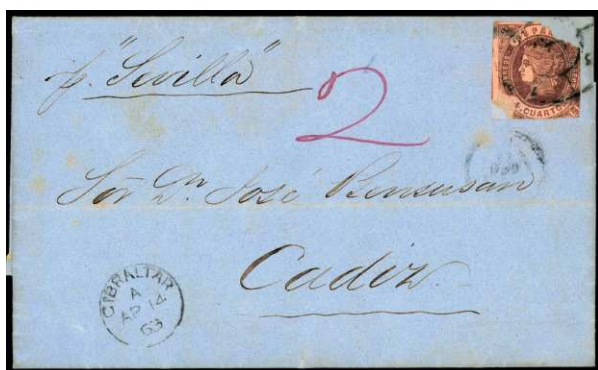 p. "Sevilla"
4 CUARTOS
2
Sor Dn José Bensusan
Cadiz
GIBRALTAR
A
AP 14
63